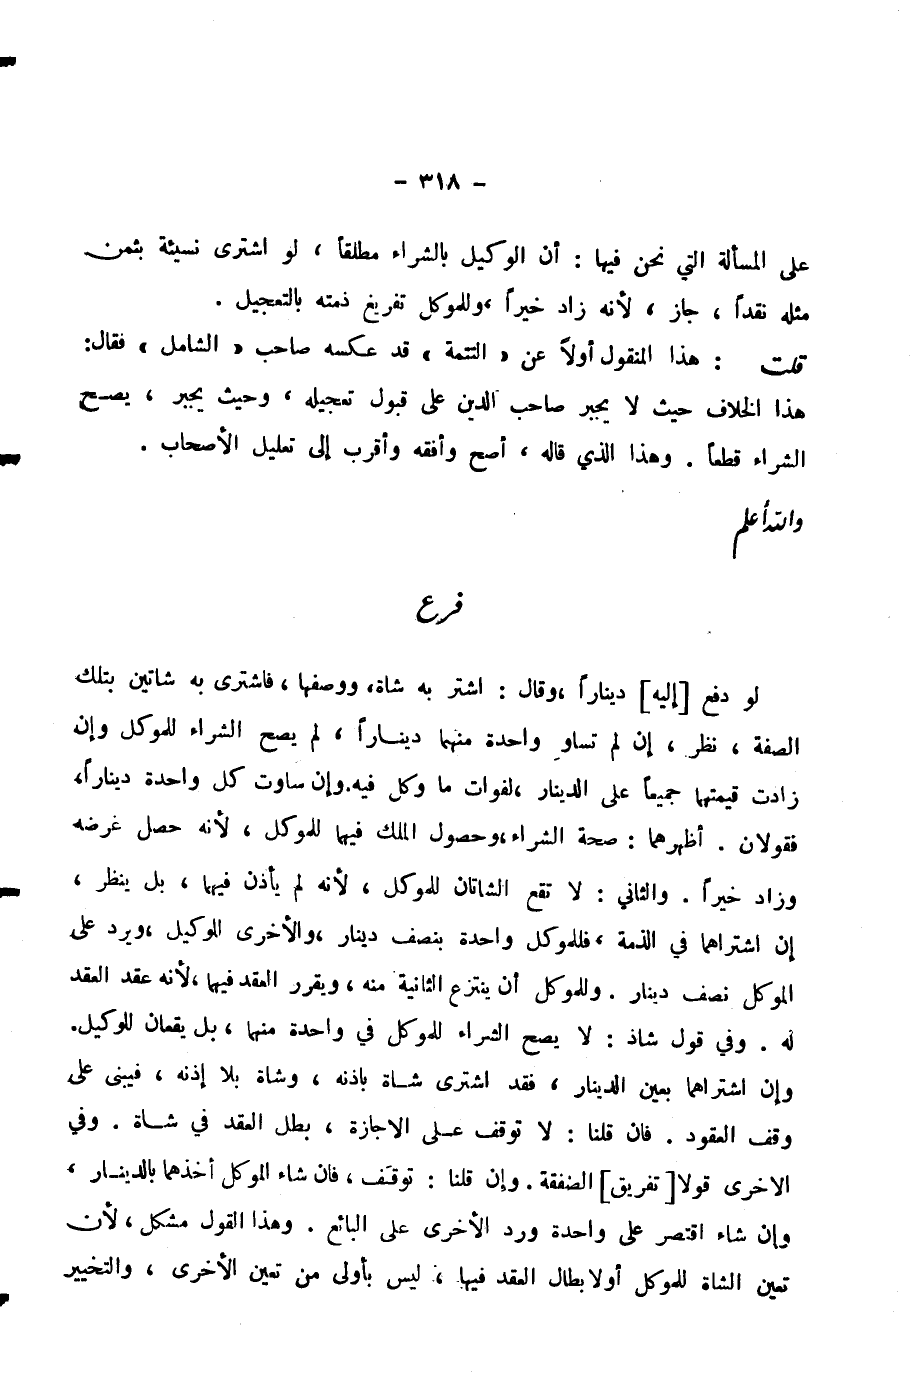 - ٣١٨ -
على المسألة التي نحن فيها : أن الوكيل بالشراء مطلقاً ، لو اشترى نسيئة بثمن
مثله نقداً ، جاز ، لأنه زاد خيراً ، وللموكل تفريغ ذمته بالتعجيل .
قلت : هذا المنقول أولاً عن « التتمة » قد عكسه صاحب « الشامل » فقال:
هذا الخلاف حيث لا يجبر صاحب الدين على قبول تعجيله ، وحيث يجبر ، يصح
الشراء قطعاً . وهذا الذي قاله ، أصح وأفقه وأقرب إلى تعليل الأصحاب .
والله أعلم
فرع
لو دفع [إليه] ديناراً ،وقال : اشتر به شاة، ووصفها ، فاشترى به شاتين بتلك
الصفة ، نظر ، إن لم تساو واحدة منهما ديناراً ، لم يصح الشراء للموكل وإن
زادت قيمتها جميعاً على الدينار ،لفوات ما وكل فيه.وإن ساوت كل واحدة ديناراً،
فقولان . أظهرهما : صحة الشراء،وحصول الملك فيها للموكل ، لأنه حصل غرضه
وزاد خيراً . والثاني : لا تقع الشاتان للموكل ، لأنه لم يأذن فيها ، بل ينظر ،
إن اشتراهما في الذمة ، فللموكل واحدة بنصف دينار ،والأخرى للوكيل ،ويرد على
الموكل نصف دينار . وللموكل أن ينتزع الثانية منه ، ويقرر العقد فيها ،لأنه عقد العقد
له . وفي قول شاذ : لا يصح الشراء للموكل في واحدة منها ، بل يقعان للوكيل.
وإن اشتراهما بعين الدينار ، فقد اشترى شاة باذنه ، وشاة بلا إذنه ، فيبنى على
وقف العقود . فان قلنا : لا توقف على الاجازة ، بطل العقد في شاة . وفي
الاخرى قولا [تفريق] الصفقة . وإن قلنا : توقف ، فان شاء الموكل أخذهما بالدينار ،
وإن شاء اقتصر على واحدة ورد الأخرى على البائع . وهذا القول مشكل ، لأن
تعين الشاة للموكل أولا بطال العقد فيها ، ليس بأولى من تعين الأخرى ، والتخيير